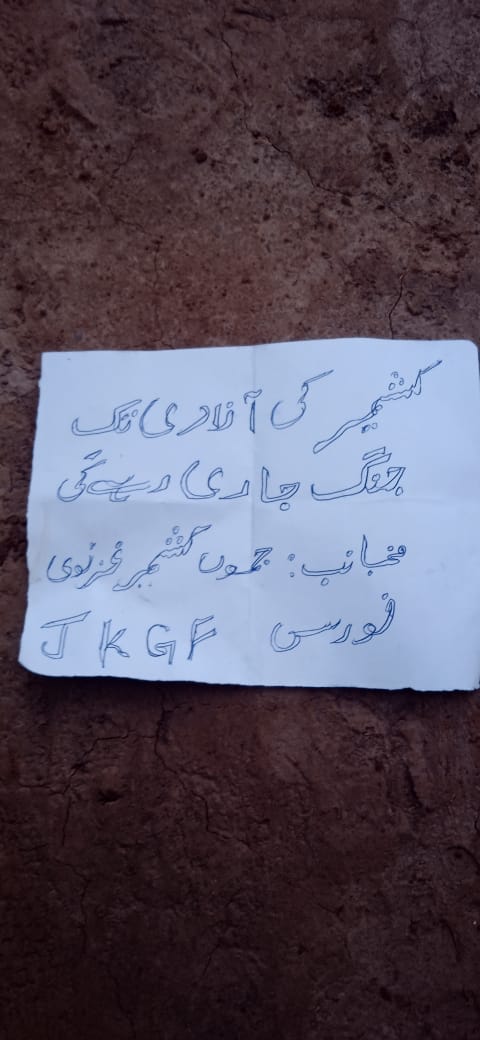 کشمیر کی آزادی تک
جنگ جاری رہے گی
منجانب: جموں کشمیر غزنوی
فورس J K G F